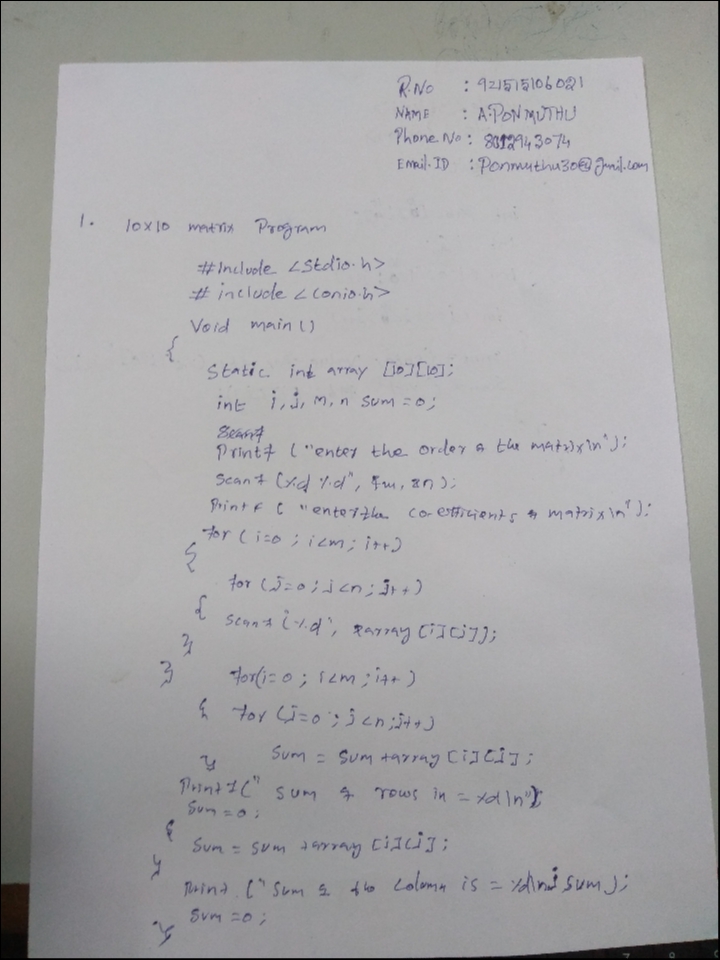 R.No : 921515106021
NAME : A.PONMUTHU
Phone No : 8012943074
Email.ID : Ponmuthu30@gmail.com
1. 10x10 matrix Program
#Include <Stdio.h>
# include <conio.h>
Void main()
{
Static int array [10][10];
int i, j, m, n sum = 0;
Scanf
Printf ("enter the order of the matrix\n");
Scanf (%d %d", &m, &n);
Printf ( "enter the co-efficients of matrix\n");
for (i=0 ; i<m; i++)
{
for (j=0; j<n; j++)
{
Scanf (%d", &array [i][j]);
}
}
for(i=0 ; i<m ; i++)
{ for (j=0 ; j<n; j++)
Sum = Sum +array [i][j];
}
Printf (" Sum of rows in = %d\n");
Sum = 0;
{
Sum = sum +array [i][j];
}
Print ("Sum of the column is = %d\n", Sum);
Sum =0;
}